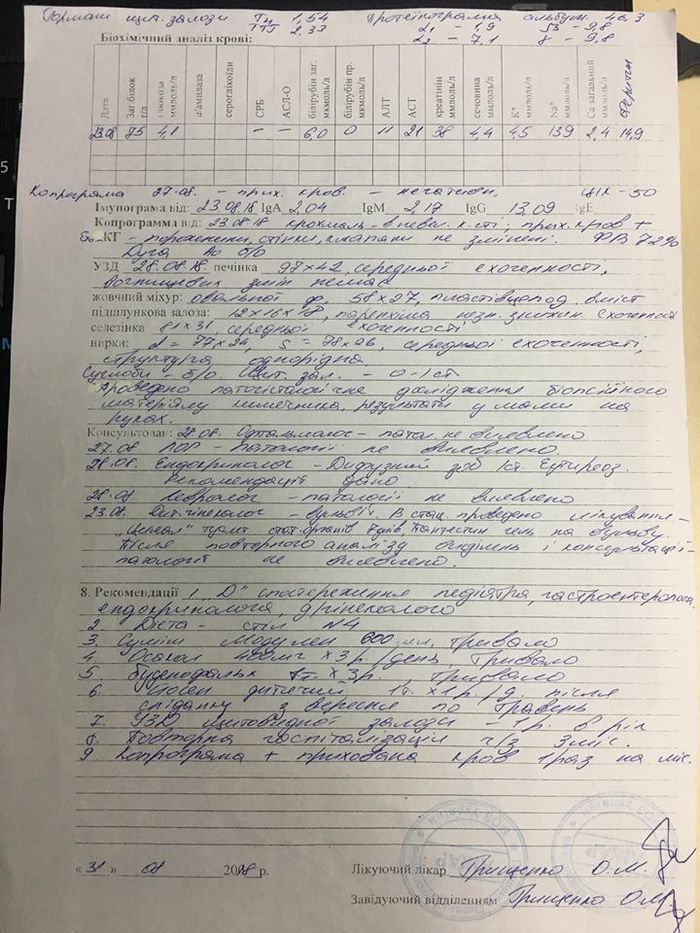 Гормони щит. залози Т4 1,54 Протеінограма альбум. 46,3
ТТГ 2,33 α1 - 1,9 β - 9,8
α2 - 7,1 γ - 9,8
Біохімічний аналіз крові:
Дата Заг.білок г/л глюкоза ммоль/л α/амилаза серогдікоїди СРБ АСЛ-О білірубін заг. мкмоль/л білірубін пр. мкмоль/л АЛТ АСТ креатінін ммоль/л сечовина ммоль/л К⁺ ммоль/л Na⁺ ммоль/л Са загальний ммоль/л Феритин
23.08 75 4,1 – – 6,0 0 11 21 38 4,4 4,5 139 2,4 14,9
Копрограма 27.08. - прих. кров. - негативн. ЦІК - 50
Імунограма від: 23.08.18 IgA 2,04 IgM 2,17 IgG 13,09 IgE
Копрограмма від: 23.08.18 крохмаль - в невел. к-сті, прих. кров +
КГ - порожнини, стінки, клапани не змінені. ФВ 72%
Дуга Ао б/о
УЗД 28.08.18. печінка 97х42, середньої ехогенності,
вогнищевих змін немає
жовчний міхур: овальної ф. 58х27, вміст
підшлункова залоза: 12х16х18, паренхіма незн. змінен. Ехогенності
селезінка 81х31, середньої ехогенності
нирки: d = 77х26, s = 78х26, середньої ехогенності,
структура однорідна
Суглоби - б/о Щит. зал. - 0-1 ст.
Проведено патогістологічне дослідження біопсійного
матеріалу кишечника, результати у мами на
руках.
Консультован: 28.08. Офтальмолог - патол. не виявлено
27.08 ЛОР - патології не виявлено.
28.08. Ендокринолог - Дифузний зоб Іст. Еутиреоз.
Рекомендації дано
28.08 Невролог - патології не виявлено
23.08. Дит. гінеколог - вульвіт. В стац. проведено лікування -
туалет стат. органів гель на вульву.
Після повторного аналізу виділень і консультації -
патології не виявлено.
8. Рекомендації 1. "Д" спостереження педіатра, гастроентеролога,
ендокринолога, д/гінеколога
2. Дієта - стіл N4
3. Суміш Модулен 600 мл. тривало
4. Осакол 400мг х 3 р. /день тривало
5 Буденофальк 1т. х 3р., тривало
6. дитячий 1т. х 1 р. /д. після
сніданку з вересня по травень
7. УЗД щитовидної залози - 1 р. в рік
8. Повторна госпіталізація ч/з 3 міс.
9. Копрограма + прихована кров 1 раз на міс.
« 31 » 08 2018 р. Лікуючий лікар Грищенко О.М.
Завідуючий відділенням Грищенко О.М.